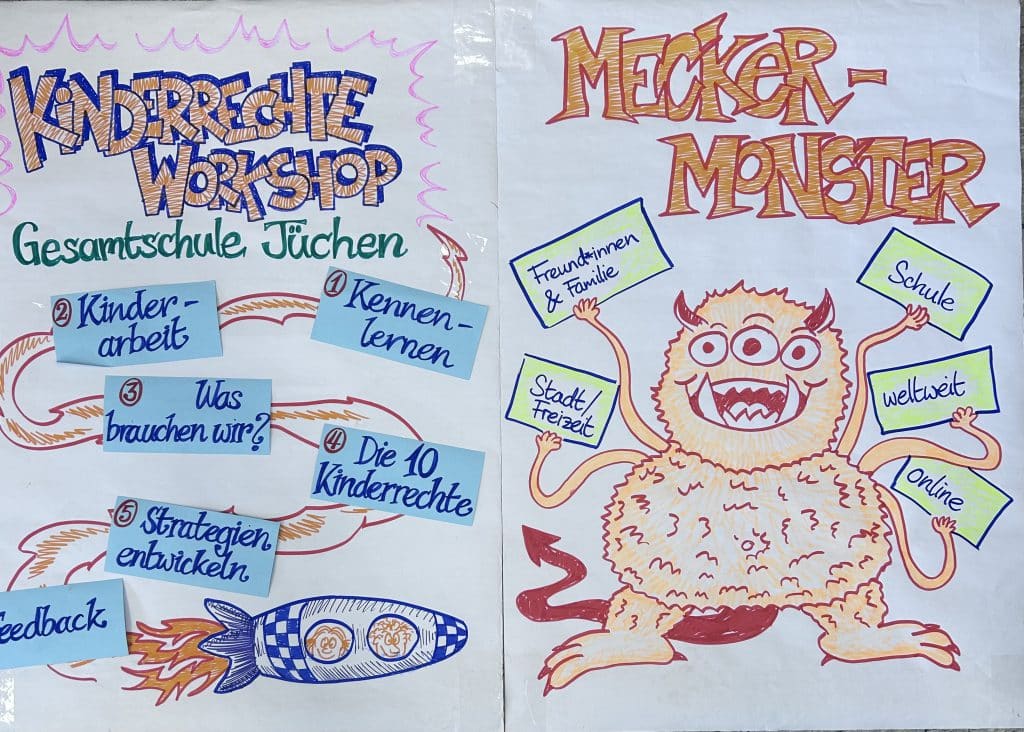 KINDERRECHTE
WORKSHOP
Gesamtschule Jüchen
① Kennen-
lernen
② Kinder-
arbeit
③ Was
brauchen wir?
④ Die 10
Kinderrechte
⑤ Strategien
entwickeln
eedback
MECKER-
MONSTER
Freund*innen
& Familie
Schule
Stadt/
Freizeit
weltweit
online